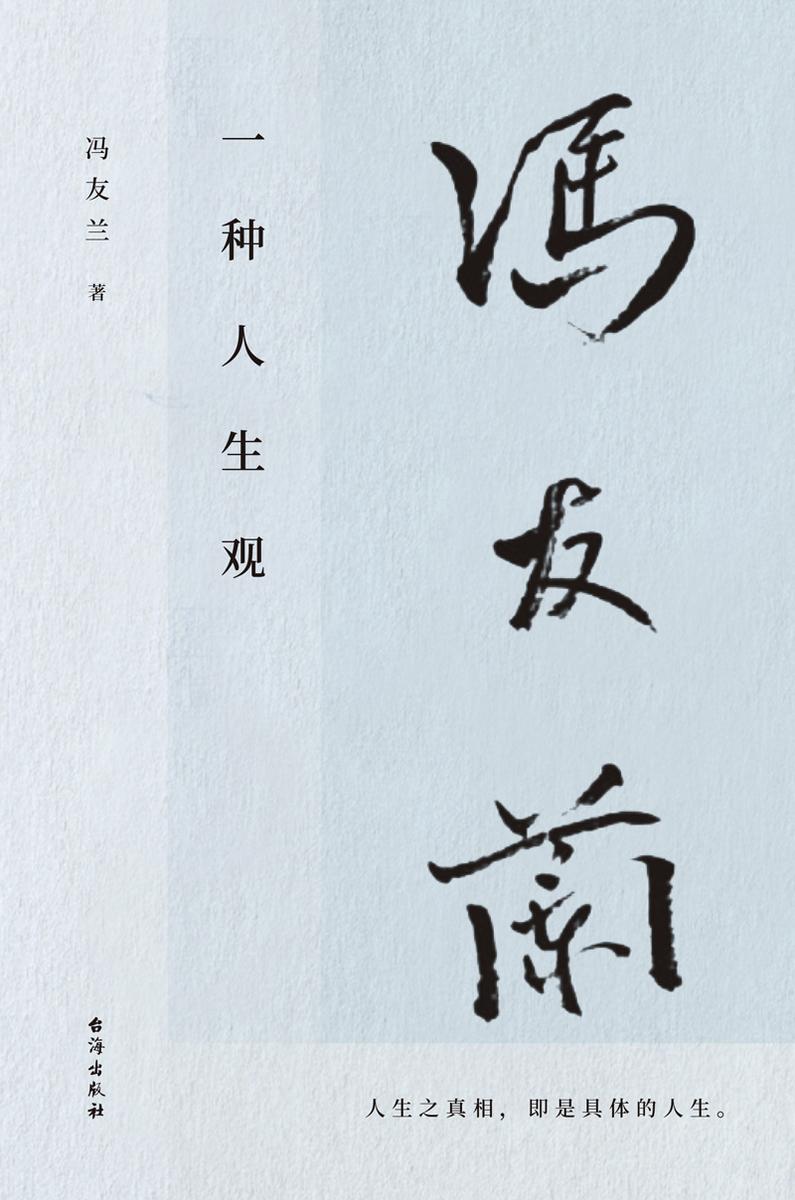 馮友蘭
一种人生观
冯友兰 著
台海出版社
人生之真相，即是具体的人生。